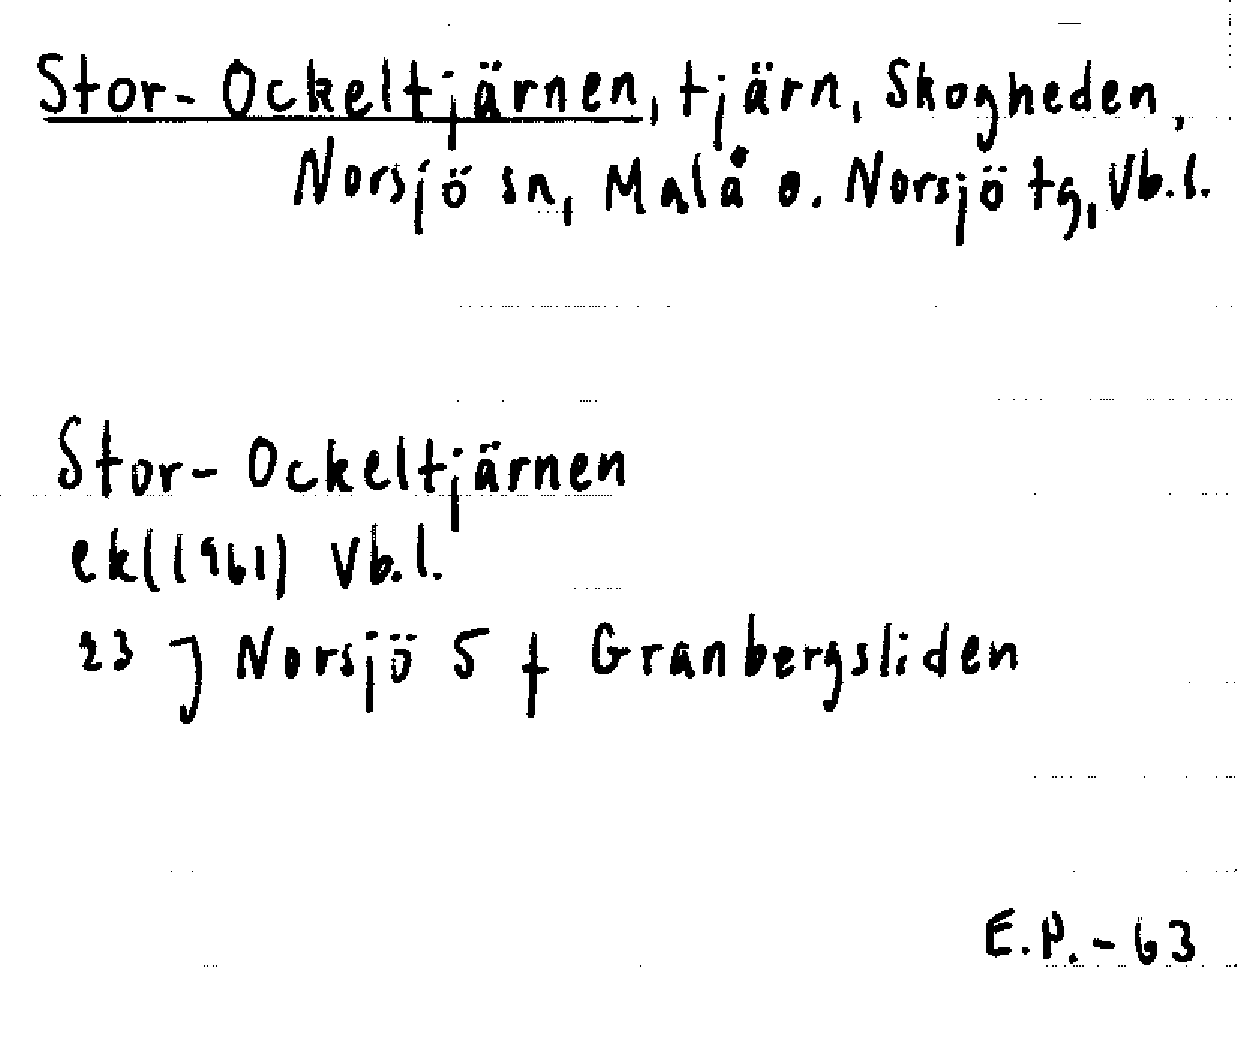 Stor-Ockeltjärnen, tjärn, Skogheden,
Norsjö sn, Malå o. Norsjö tg, Vb.l.
Stor-Ockeltjärnen
ek(1961) Vb.l.
23 J Norsjö 5 f Granbergsliden
E.P.-63